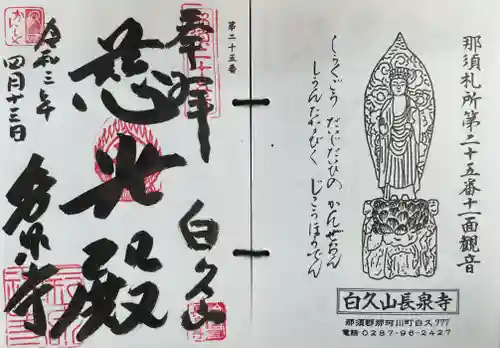 那須札所第二十五番十一面観音
しらくどう だいじだいひの かんぜおん
しうんたなびく じこうほのでん
白久山長泉寺
那須郡那珂川町白久777
電話0287-96-2427
第二十五番
奉拝
白久山
慈光殿
令和三年
四月十三日
長泉寺